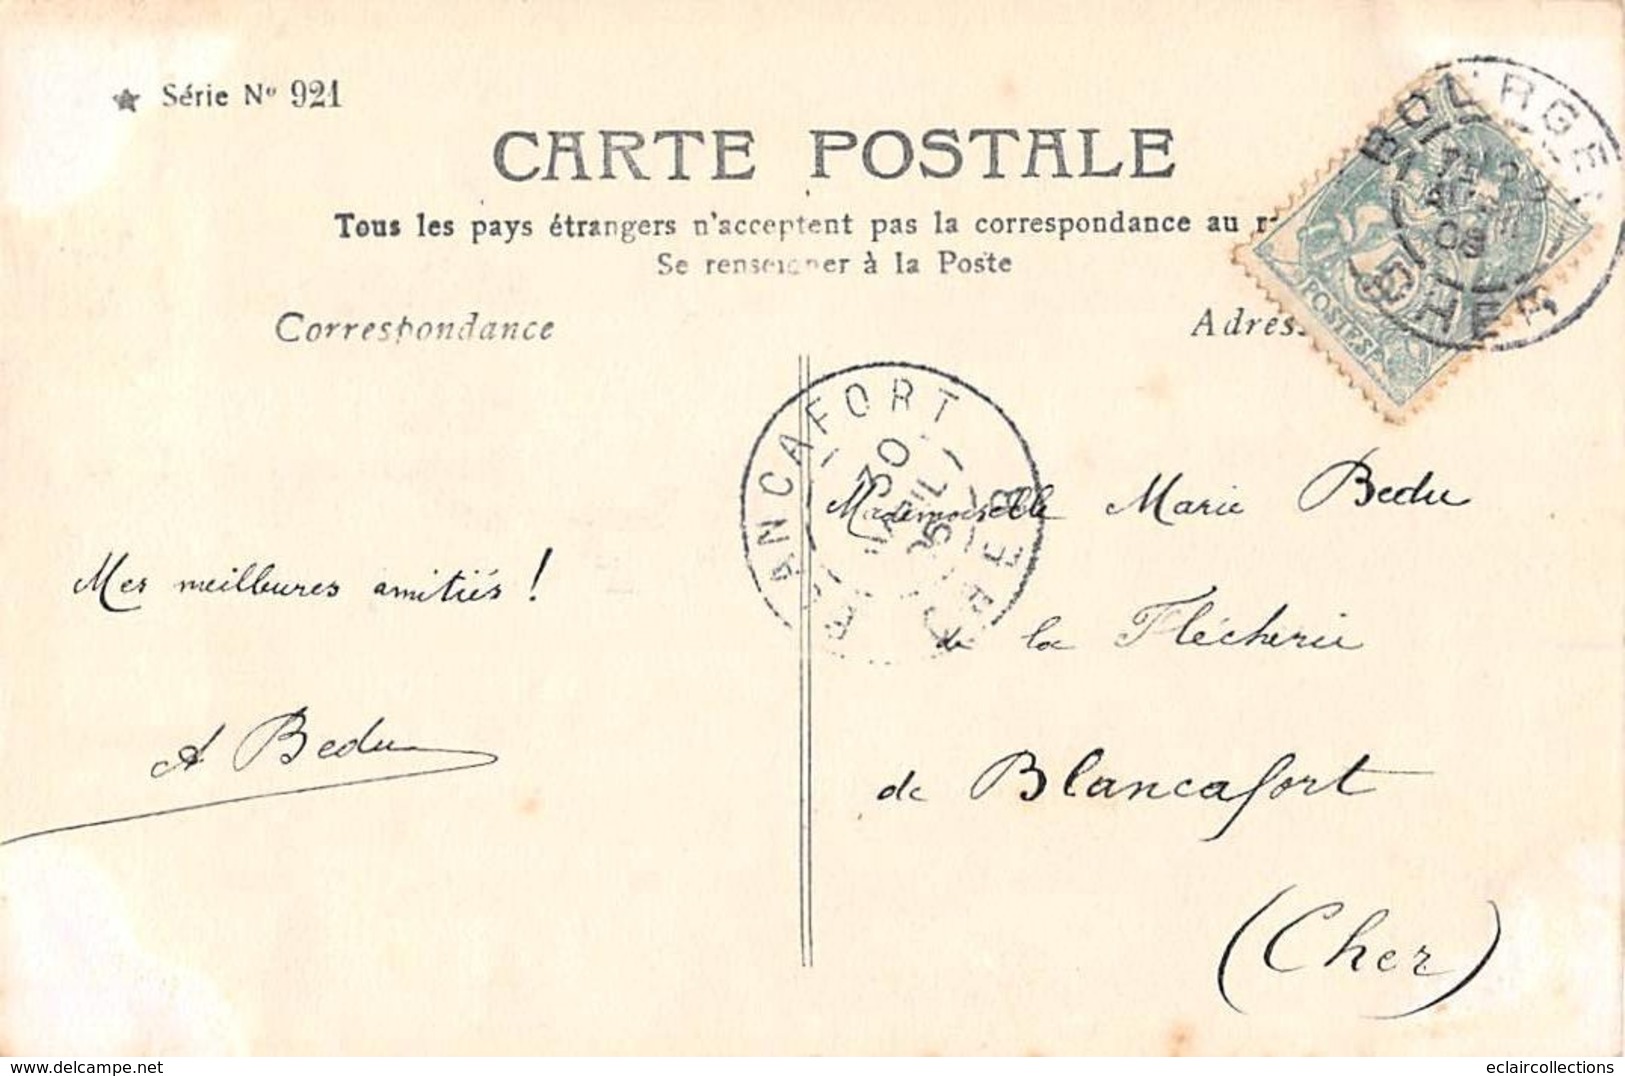 ★ Série Nº 921
CARTE POSTALE
Tous les pays étrangers n'acceptent pas la correspondance au
Se renseigner à la Poste
Correspondance
Adres
POSTES
BOURGES
08
CHER
BLANCAFORT
30
AVRIL
05
CHER
Mademoiselle Marie Bedu
de la Flécherie
de Blancafort
(Cher)
Mes meilleures amitiés !
A Bedu
eclaircollections